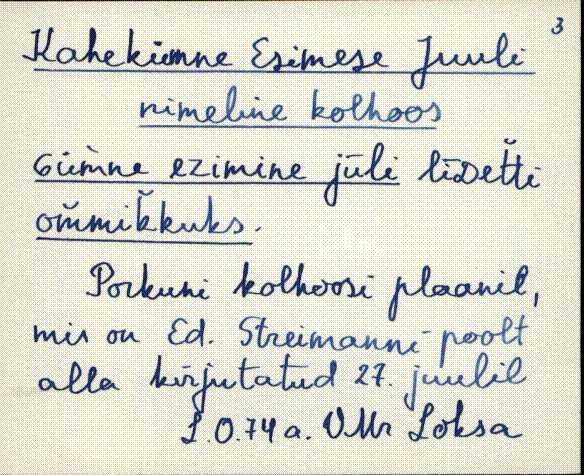 3
Kahekümne Esimese Juuli
nimeline kolhoos
ezimine jūli līDet̆ti
om̆mik̆kuks.
Porkuni kolhoosi plaanil,
mis on Ed. Streimanni poolt
alla kirjutatud 27. juulil
S.O.74 a. VMr Loksa